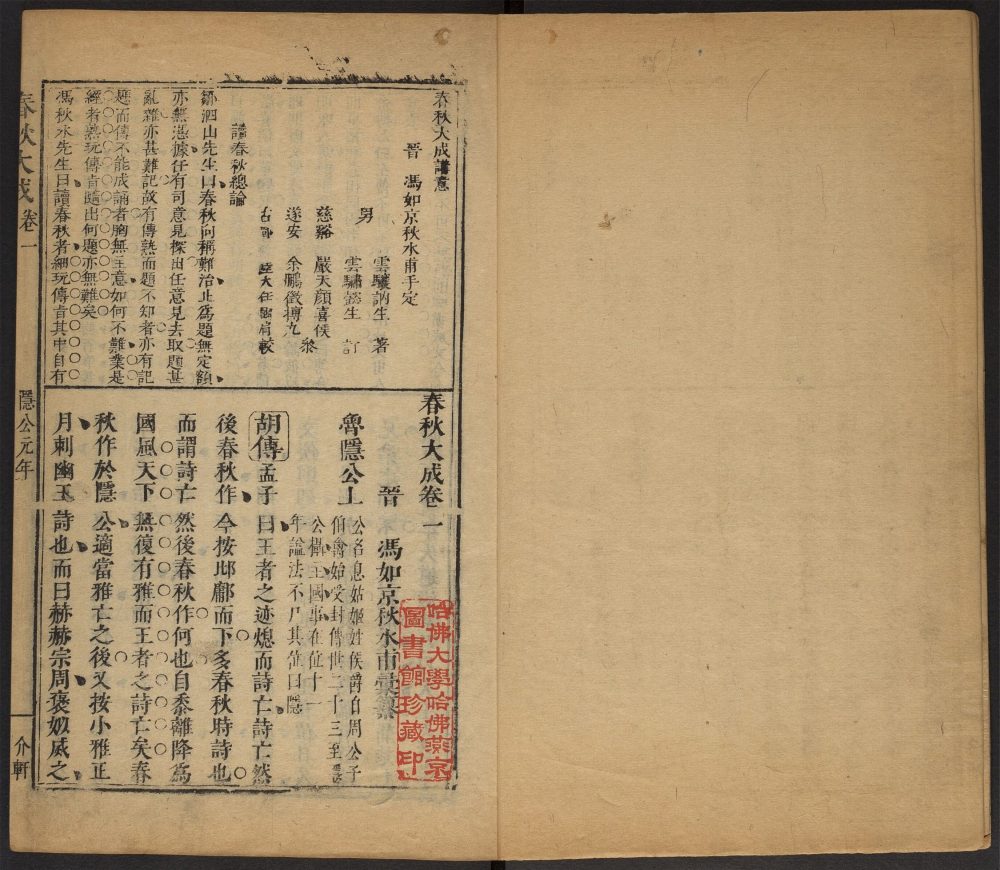 春秋大成講意
晉 馮如京秋水甫手定
男 雲驤訥生 著
雲驌懿生 訂
慈谿 嚴天顏喜侯
遂安 余鵬徵搏九 叅
較
讀春秋總論
鄒泗山先生曰春秋向稱難治止為題無定額
亦無憑據任有司意見探出任意見去取題甚
亂雜亦甚難記故有傳熟而題不知者亦有記
題而傳不能成誦者胸無主意如何不難業是
經者熟玩傳旨隨出何題亦無難矣
馮秋水先生曰讀春秋者細玩傳旨其中自有
春秋大成卷一
晉 馮如京秋水甫彙纂
魯隱公上
公名息姑姬姓侯爵自周公子
伯禽始受封傳世二十三至
公攝主國事在位十一
年諡法不尸其位曰隱
胡傳孟子曰王者之迹熄而詩亡詩亡然
後春秋作今按邶鄘而下多春秋時詩也
而謂詩亡然後春秋作何也自黍離降為
國風天下無復有雅而王者之詩亡矣春
秋作於隱公適當雅亡之後又按小雅正
月刺幽王詩也而曰赫赫宗周褒姒烕之
春秋大成 卷一
隱公元年
介軒
哈佛大學哈佛燕京
圖書館珍藏印